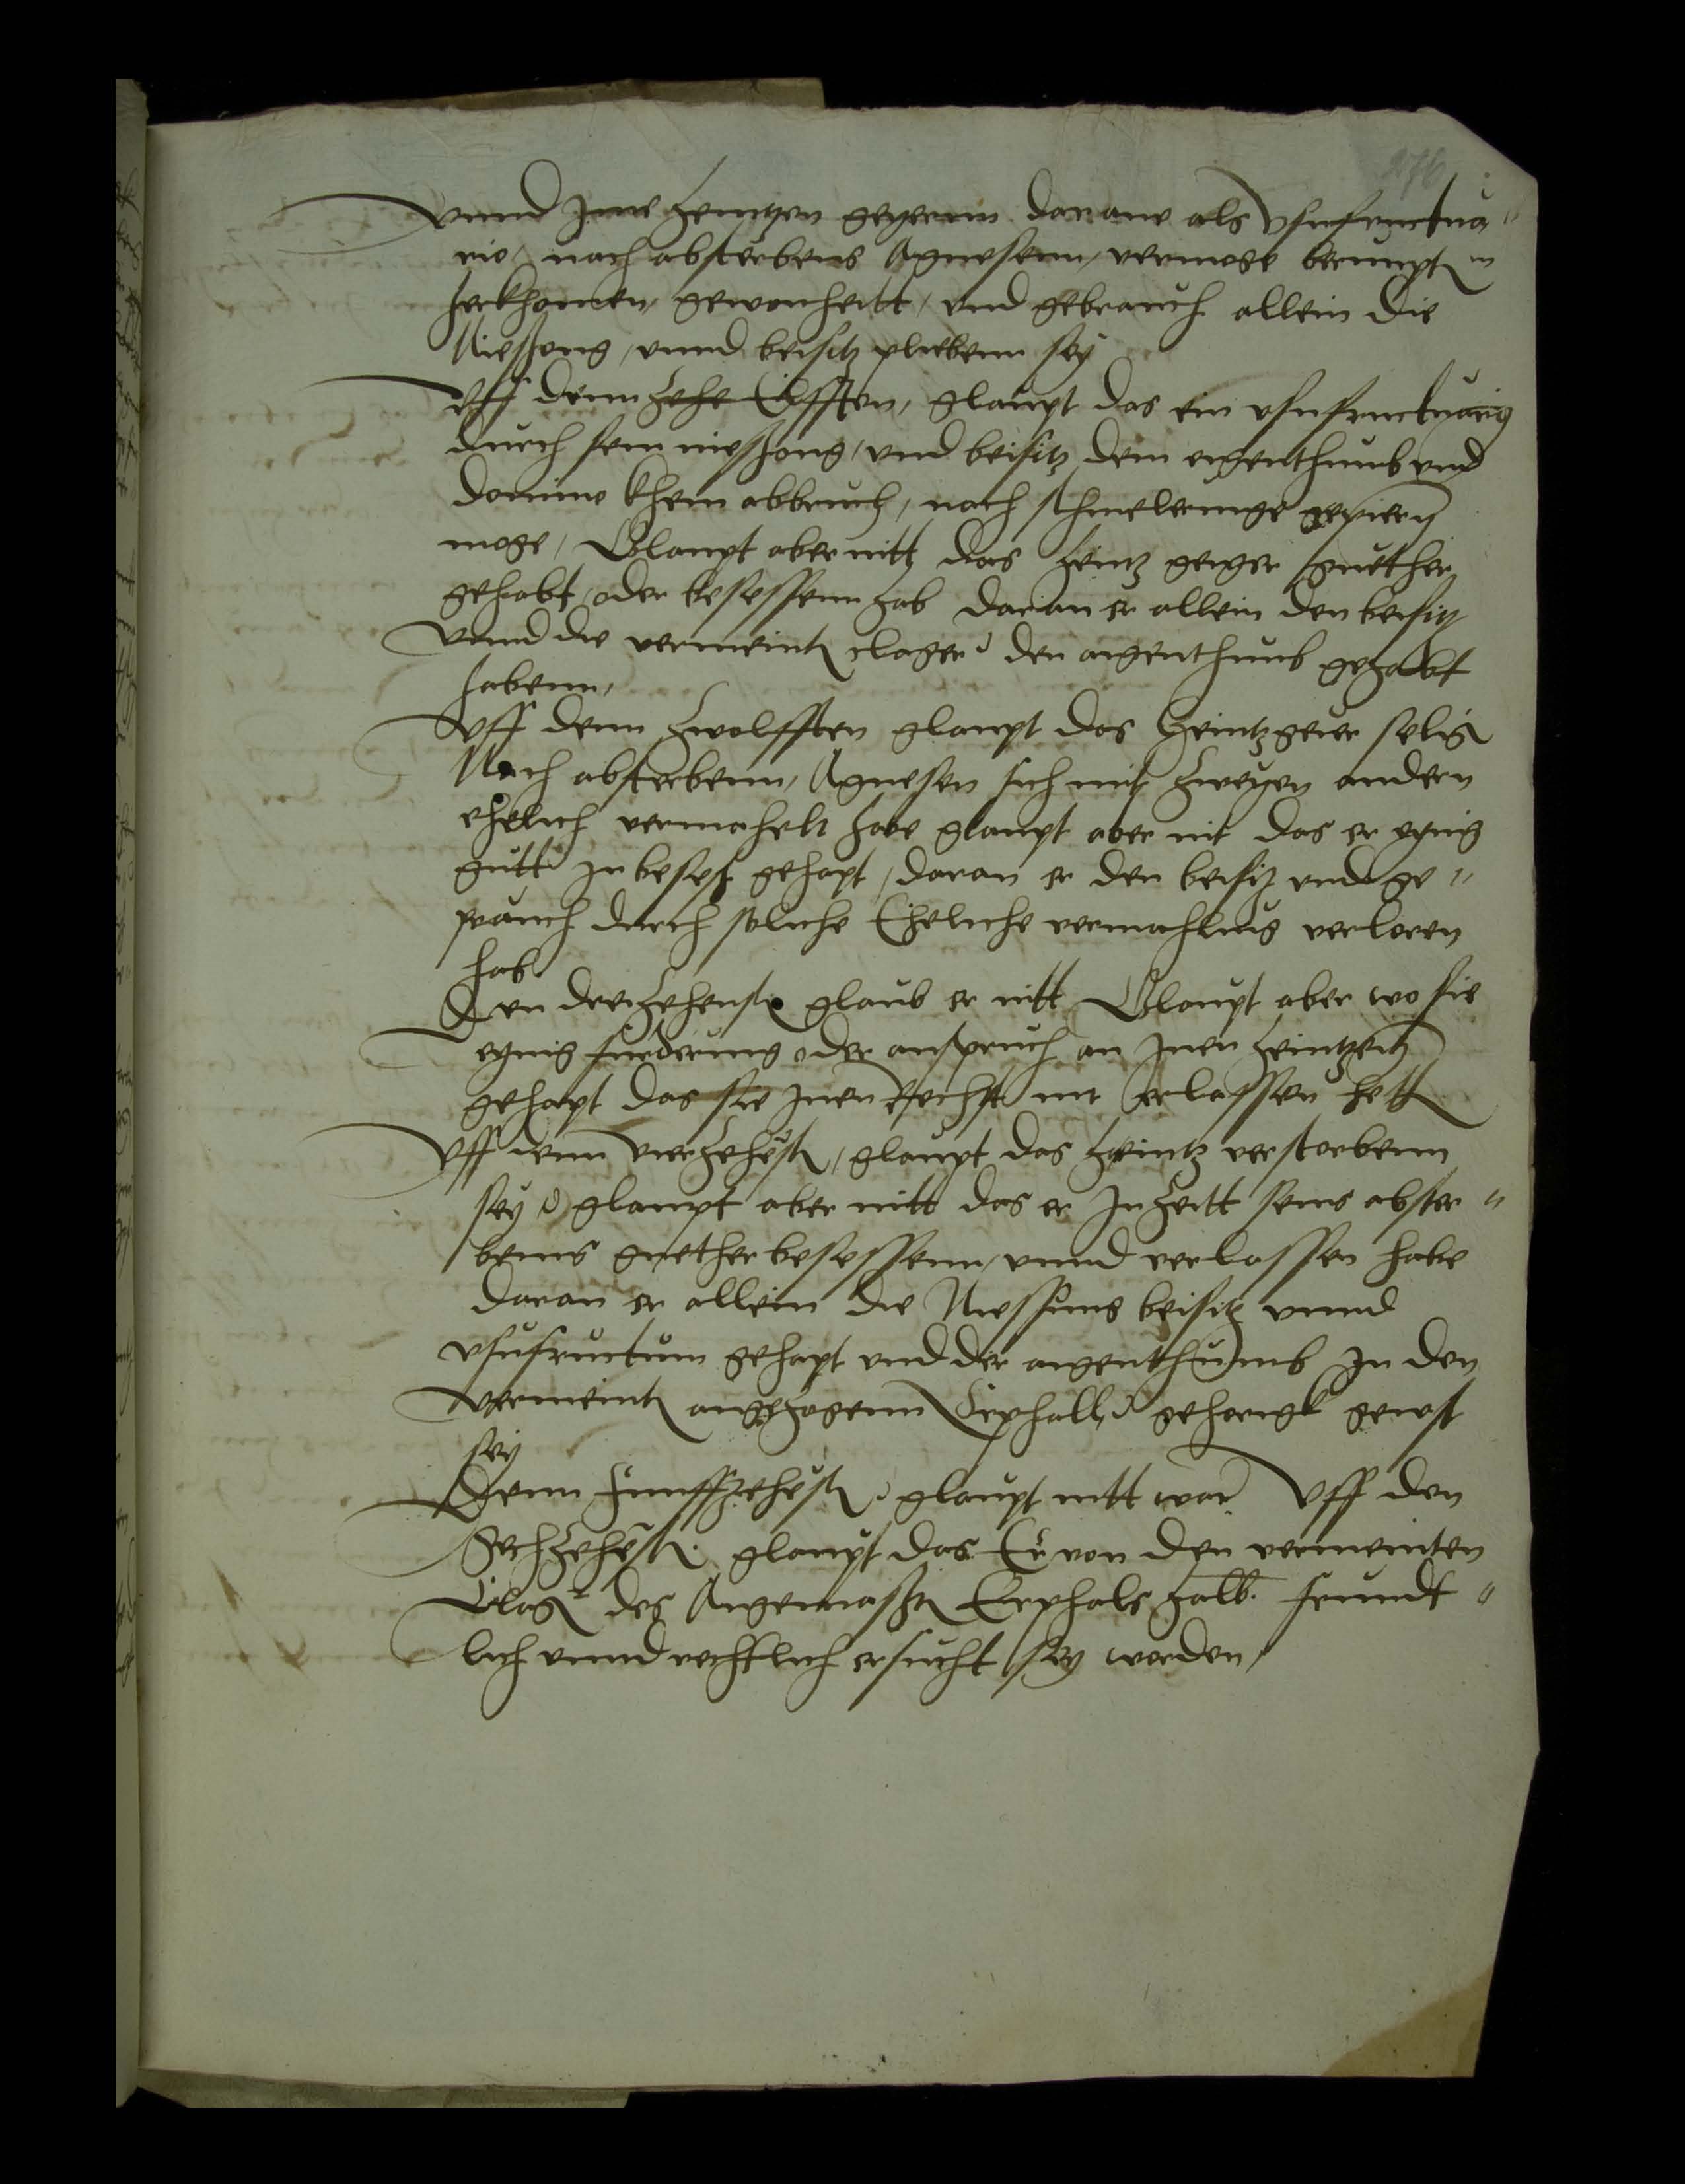 vnnd Jme Heintzen geyernn darane als Vsufructua"
rio, nach absterbens Agnesenn, vermoge berumpt"
herkhomen, gewonheitt, vnd gebrauch allein die
Niessong, vnnd beisitz pliebenn sey
Vff denn Eilfften, glaupt das ein vsufructuarius
durch sein niessong, vnd beisitz dem eigenthumb vnd
domino khein abbruch, noch schmelerunge gepiern
moge, Glaupt aber nitt das Heintz geyger guether
gehabt, oder besessenn hab daran er allein den beisitz
vnnd die vermeint clager den aigenthumb gehabt
habenn,
Vff denn Zwolfften glaupt das Heintz geier selig
Nach absterbenn, Agnesen sich mit zweyen andern
ehelich vermahelt habe glaupt aber nit das er eynig
gutt In besess gehapt, daran er den beisitz vnd ge"
prauch durch soliche Eheliche vermahlung verloren
hab
Den dreizehenst glaub er nitt Glaupt aber wo sie
eynig furderung oder anspruch an Jnen Heintzen
gehapt das sie Jnen Rechts nit erlassen hett
Vff denn vierzehest, glaupt das Heintz verstorbenn
sey glaupt aber nitt das er In Zeitt seins abster"
benns guether besessenn, vnnd verlassen habe
daran er allein die Niessung beisitz vnnd
vsufructum gehapt vnd der aigenthumb In den
vermeint angezogenn Erphall, gehorigk gewest
sey
Denn funffzehest, glaupt nitt war Vff den
Sechzehest. glaupt das Er von den vermeinten
Clag des Angemasst Erphals halb. frundt"
lich vnnd rechtlich ersucht sey worden,